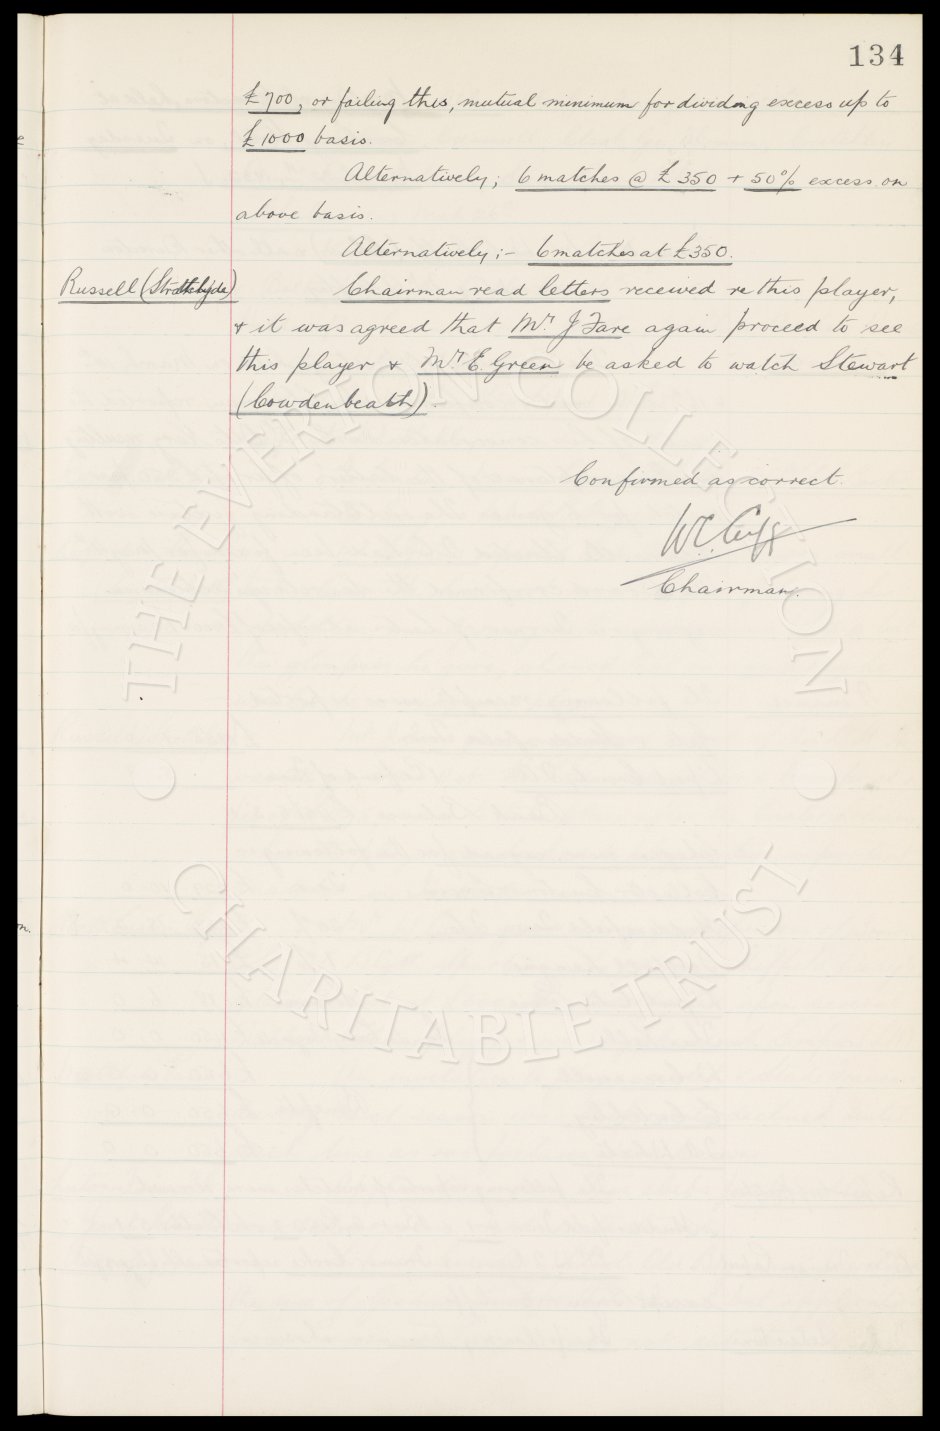 134
£700, or failing this, mutual minimum for dividing excess up to
£1000 basis.
Alternatively; 6 matches @ £350 + 50% excess on
above basis.
Alternatively;- 6 matches at £350.
Russell (Strathclyde) Chairman read letters received re this player,
& it was agreed that Mr. J Fare again proceed to see
this player & Mr E. Green be asked to watch Stewart
(Cowdenbeath).
Confirmed as correct.
W.C. Cuff
Chairman.
THE EVERTON COLLECTION
CHARITABLE TRUST